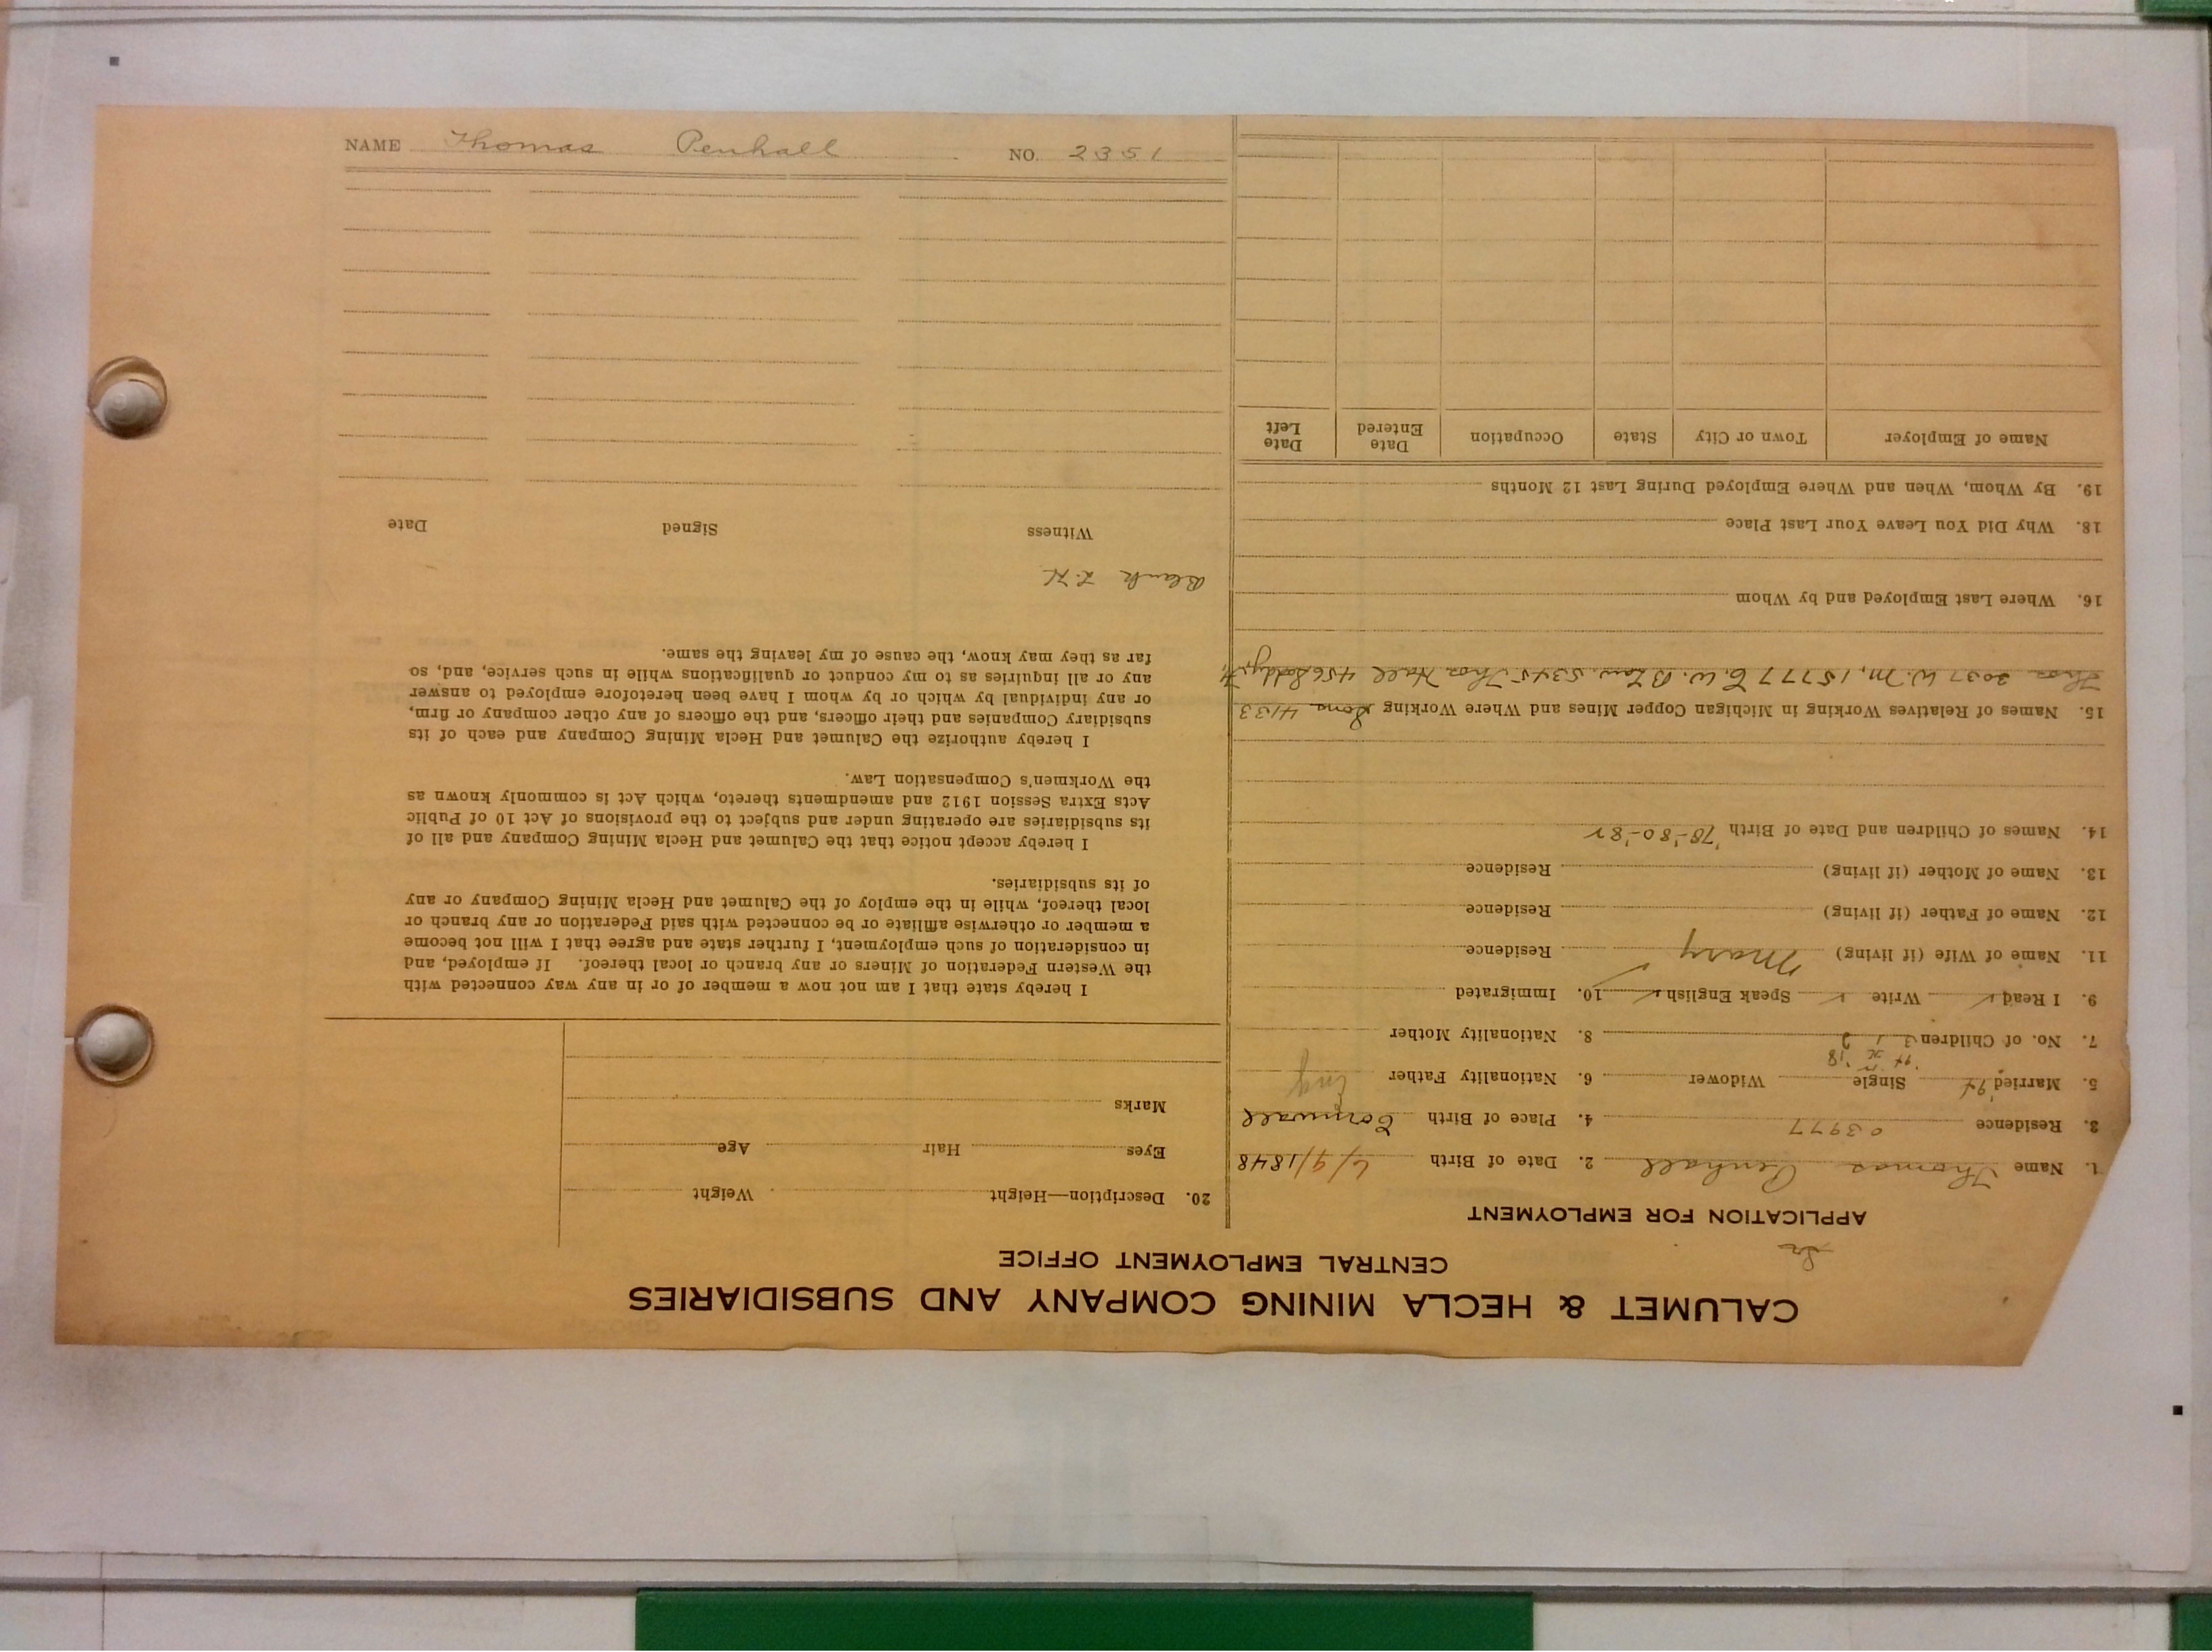 CALUMET & HECLA MINING COMPANY AND SUBSIDIARIES
CENTRAL EMPLOYMENT OFFICE
APPLICATION FOR EMPLOYMENT
1. Name Thomas Penhall 2. Date of Birth 6/9/1848
3. Residence 03977 4. Place of Birth Cornwall
5. Married Single Widower 6. Nationality Father Eng
7. No. of Children 8. Nationality Mother
9. I Read ✓ Write ✓ Speak English ✓ 10. Immigrated
11. Name of Wife (if living) Mary Residence
12. Name of Father (if living) Residence
13. Name of Mother (if living) Residence
14. Names of Children and Date of Birth '78-'80-'82
15. Names of Relatives Working in Michigan Copper Mines and Where Working Sons 4133
Thos 2037 W. M, 15777 E. W. 5345 Thos Hall 456
16. Where Last Employed and by Whom
18. Why Did You Leave Your Last Place
19. By Whom, When and Where Employed During Last 12 Months
Name of Employer Town or City State Occupation Date Entered Date Left
20. Description—Height Weight
Eyes Hair Age
Marks
I hereby state that I am not now a member of or in any way connected with
the Western Federation of Miners or any branch or local thereof. If employed, and
in consideration of such employment, I further state and agree that I will not become
a member or otherwise affiliate or be connected with said Federation or any branch or
local thereof, while in the employ of the Calumet and Hecla Mining Company or any
of its subsidiaries.
I hereby accept notice that the Calumet and Hecla Mining Company and all of
its subsidiaries are operating under and subject to the provisions of Act 10 of Public
Acts Extra Session 1912 and amendments thereto, which Act is commonly known as
the Workmen's Compensation Law.
I hereby authorize the Calumet and Hecla Mining Company and each of its
subsidiary Companies and their officers, and the officers of any other company or firm,
or any individual by which or by whom I have been heretofore employed to answer
any or all inquiries as to my conduct or qualifications while in such service, and, so
far as they may know, the cause of my leaving the same.
Blank
Witness Signed Date
NAME Thomas Penhall NO. 2351